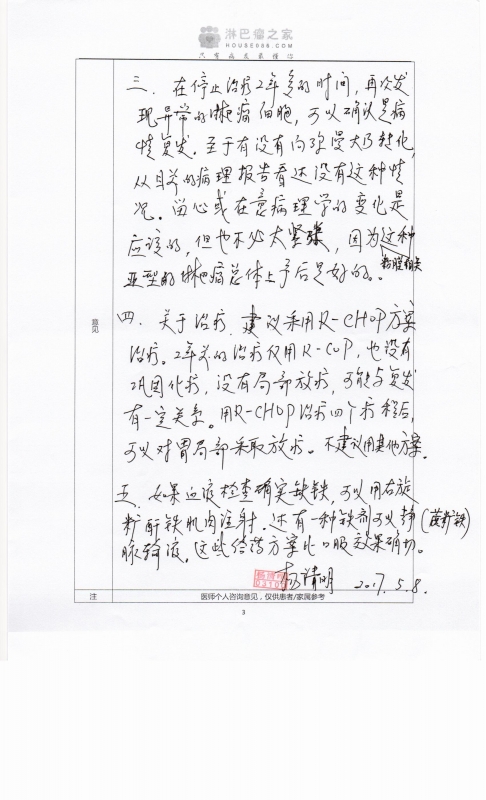 淋巴瘤之家
HOUSE086.COM
只有病友最懂你
三、在停止治疗2年多的时间,再次发
现异常的淋巴瘤细胞,可以确认是病
情复发。至于有没有向弥漫大B转化,
从目前的病理报告看还没有这种情
况。留心或在意病理学的变化是
应该的,但也不必太紧张,因为这种
与胃相关
亚型的淋巴瘤总体上予后是好的。
四、关于治疗,建议采用R-CHOP方案
治疗。2年前的治疗仅用R-COP,也没有
巩固化疗,没有局部放疗,可能与复发
有一定关系。用R-CHOP治疗四个疗程后,
可以对胃局部采取放疗。不建议用其他方案.
五、如果血液检查确实缺铁,可以用右旋
糖酐铁肌肉注射.还有一种铁剂可以静(蔗糖铁)
脉输液,这些给药方案比口服效果确切。
2017.5.8.
意见
注
医师个人咨询意见,仅供患者/家属参考
3